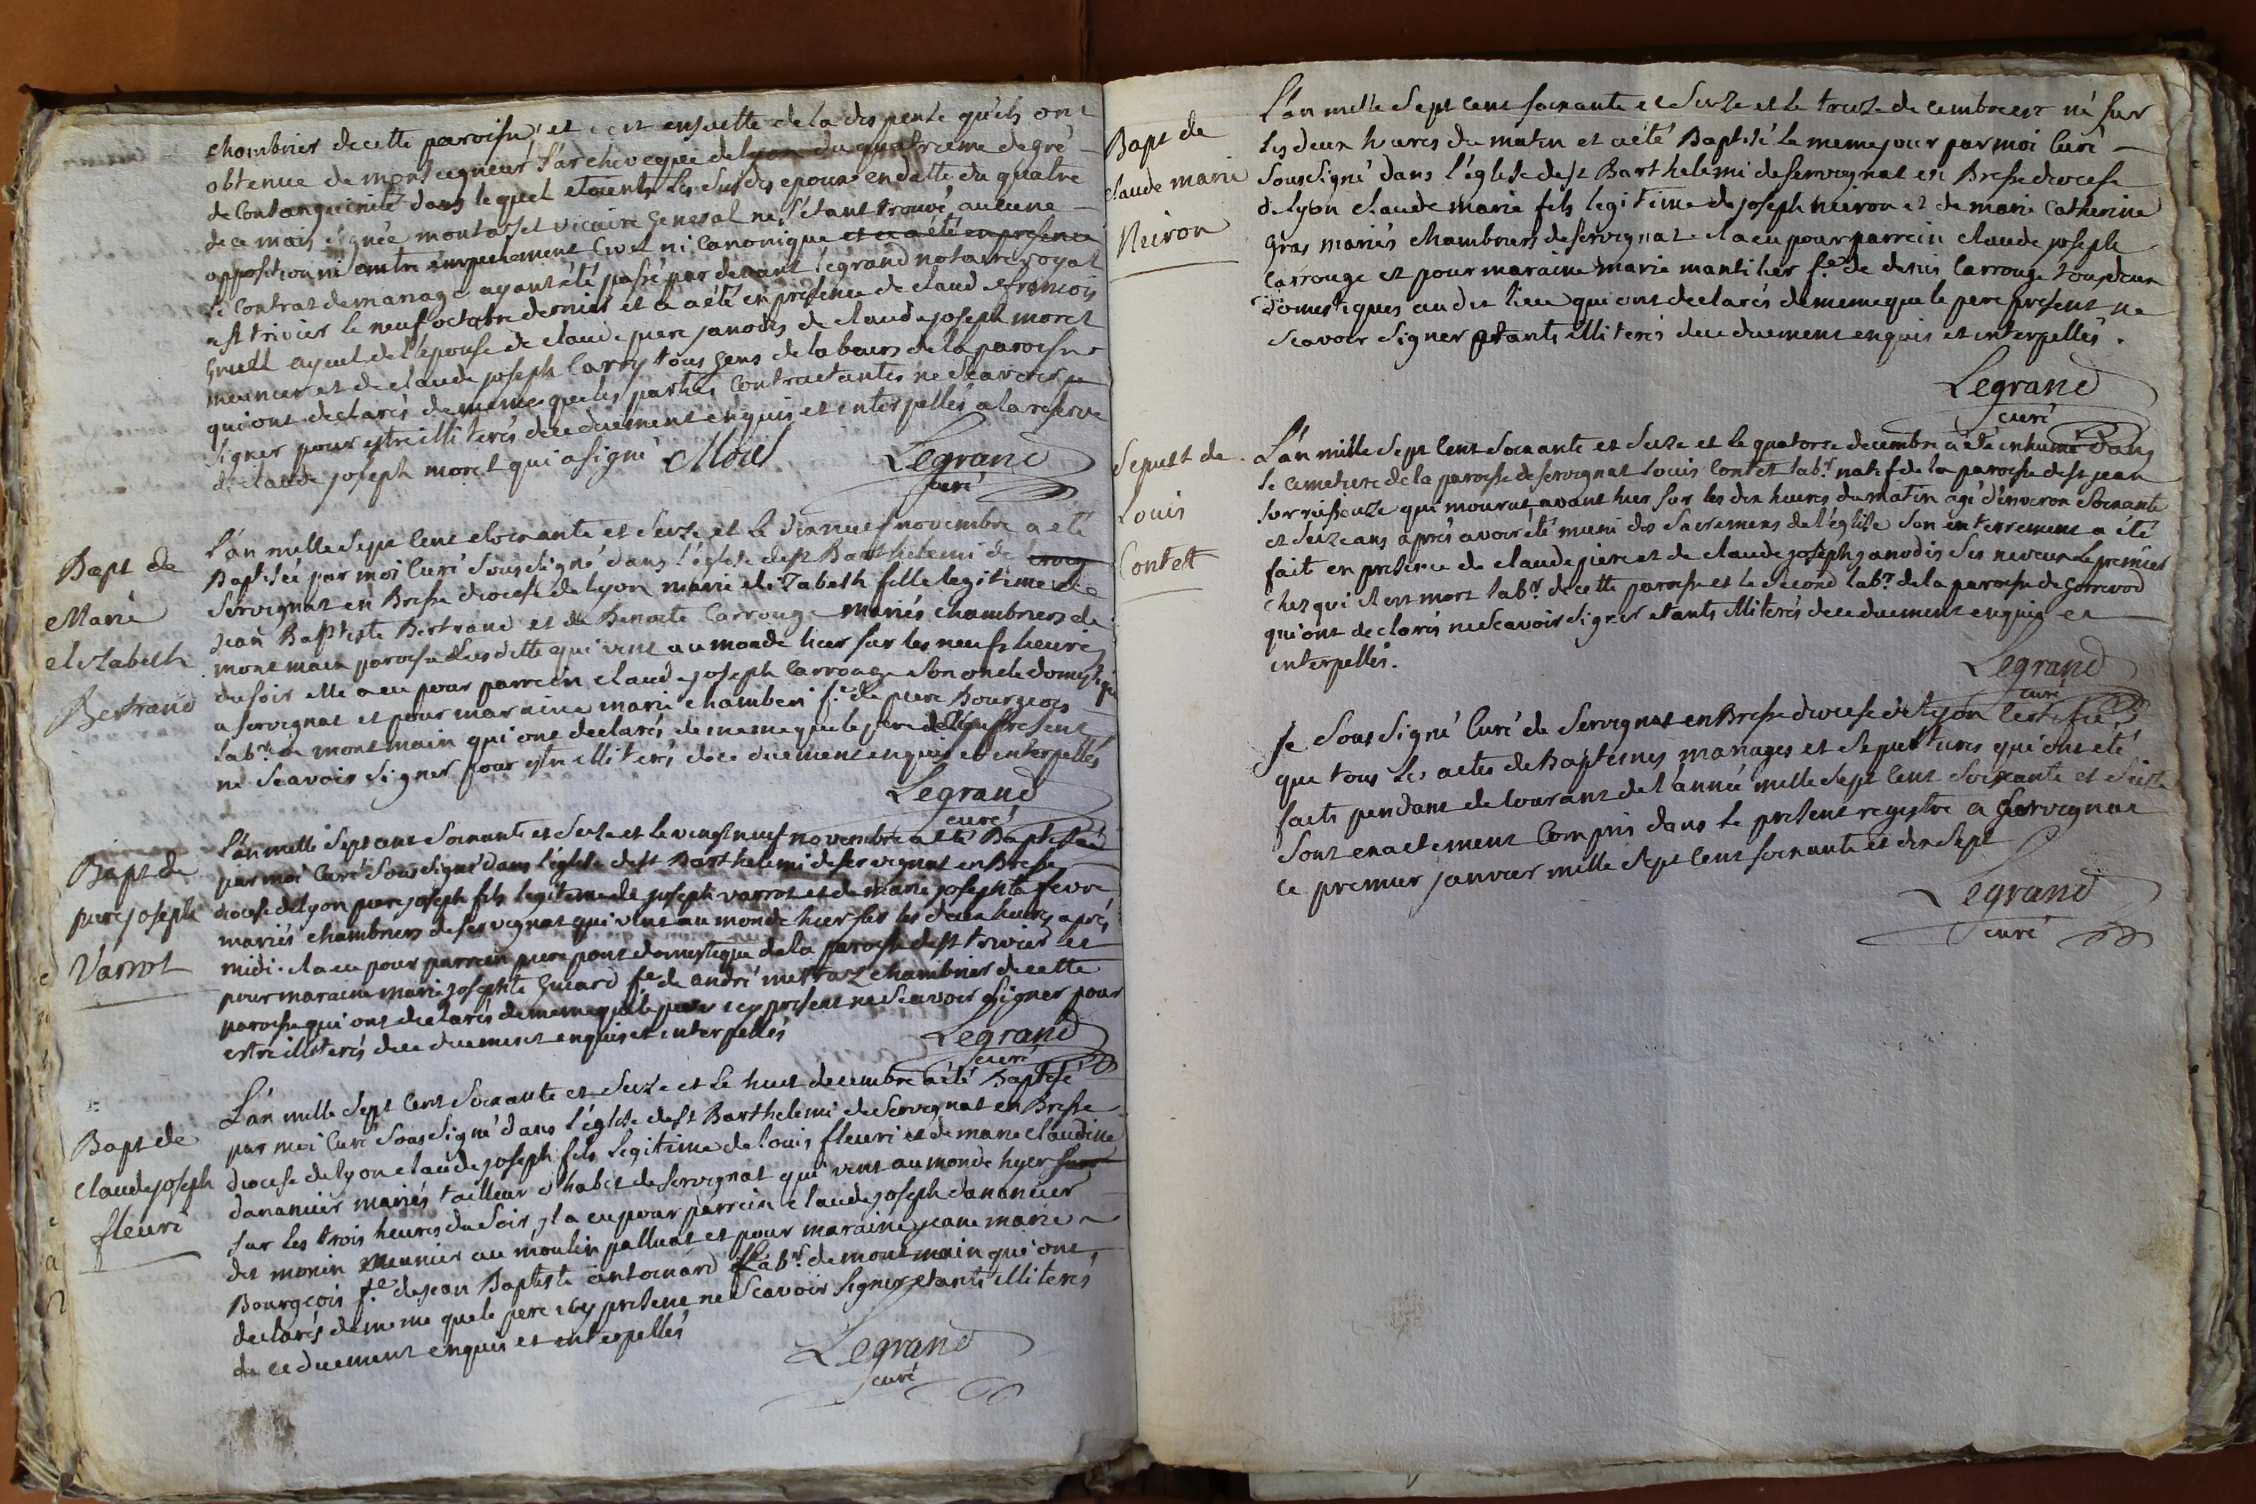 chambrier de cette paroisse, et ce et ensuitte de la dispense qu'ils ont
obtenue de monseigneur l'archeveque de lyon du quatrieme degré
de consanguinité dans lequel etoient les susdis epoux en datte du quatre
de ce mois signée vicaire General ne s'étant trouvé aucune
opposition ni autre empechement Civil ni Canonique et ce a été en presence
le contrat de mariage ayant été passé par devant legrand notaire royal
a st trivier le neuf octobre dernier et ce a été en presence de claude francois
ayeul de l'épouse de claude piere janodis de claude joseph morel
meunier et de claude joseph Carry tous gens de labeurs de la paroisse
qui ont declarés de meme que les parties Contractantes ne scavoir
signer pour estre illiterés de ce duement enquis et interpellés a la reserve
de claude joseph morel qui a signé Morel Legrand
curé
Bapt de
Marie
elizabeth
Bertrand
L'an mille sept cent soixante et seize et le dixneuf novembre a eté
Baptisée par moi Curé soussigné dans l'église de st Barthelemi de
Servignat en Bresse diocese de lyon marie elizabeth fille legitime de
jean Baptiste Bertrand et de Benoite Carrouge mariés chambriers de
montmain paroisse susditte qui vint au monde hier sur les neufs heures
du soir elle a eu pour parrein claude joseph Carrouge son oncle domestique
a servignat et pour maraine marie chamberi f.e de piere Bourgeois
lab.r de montmain qui ont declarés de meme que le pere present
ne scavoir signer pour estre illiterés de ce duement enquis et interpellés
Legrand
curé
Bapt de
piere joseph
Varrot
L'an mille sept cent soixante et seize et le vingt neuf novembre a eté Baptisé
par moi Curé soussigné dans l'église de st Barthelemi de servignat en Bresse
diocese de lyon piere joseph fils legitime de joseph varrot et de marie josephte fevre
mariés chambriers de servignat qui vint au monde hier sur les deux heures aprés
midi. il a eu pour parrein piere pont domestique de la paroisse de st trivier et
pour maraine marie josephte Guiard f.e de andré mettraz chambrier de cette
paroisse qui ont declarés de meme que le pere icy present ne scavoir signer pour
estre illiterés de ce duement enquis et interpellés
Legrand
curé
Bapt de
claude joseph
fleuri
L'an mille sept cent soixante et seize et le huit decembre a été Baptisé
par moi Curé soussigné dans l'église de st Barthelemi de servignat en Bresse
diocese de lyon claude joseph fils legitime de louis fleuri et de marie claudine
danancier mariés tailleur d'habit de servignat qui vint au monde hyer
sur les trois heures du soir, il a eu pour parrein claude joseph danancier
dit monin meunier au moulin palluat et pour maraine jeane marie
Bourgeois f.e de jean Baptiste antoinard lab.r de montmain qui ont
declarés de meme que le pere icy present ne scavoir signer etants illiterés
de ce duement enquis et interpellés
Legrand
curé
Bapt de
claude marie
Neiron
L'an mille sept cent soixante et seize et le treize decembre est né sur
les deux heures du matin et a été Baptisé le meme jour par moi Curé
soussigné dans l'église de st Barthelemi de servignat en Bresse diocese
de lyon claude marie fils legitime de joseph neiron et de marie Catherine
Gras mariés chambriers de servignat il a eu pour parrein claude joseph
Carrouge et pour maraine marie mantilier f.e de denis Carrouge tous deux
domestiques audit lieu qui ont declarés de meme que le pere present ne
scavoir signer etants illiterés de ce duement enquis et interpellés.
Legrand
curé
Sepult de
Louis
Contet
L'an mille sept cent soixante et seize et le quatorze decembre a été inhumé dans
le cimetiere de la paroisse de servignat louis Contet lab.r natif de la paroisse de st jean
sur reissouze qui mourut avant hier sur les dix heures du matin agé d'environ soixante
et seize ans aprés avoir été muni des sacremens de l'église son enterrement a été
fait en presence de claude piere et de claude joseph janodis ses neveux le premier
chez qui il est mort lab.r de cette paroisse et le second lab.r de la paroisse de Gorrevod
qui ont declarés ne scavoir signer etants illiterés de ce duement enquis et
interpellés.
Legrand
curé
Je soussigné Curé de Servignat en Bresse diocese de lyon Certifie
que tous les actes de Baptesmes mariages et sepultures qui ont été
faits pendant le courant de l'année mille sept cent soixante et seize
sont exactement Compris dans le present registre a Servignat
ce premier janvier mille sept cent soixante et dix sept
Legrand
curé